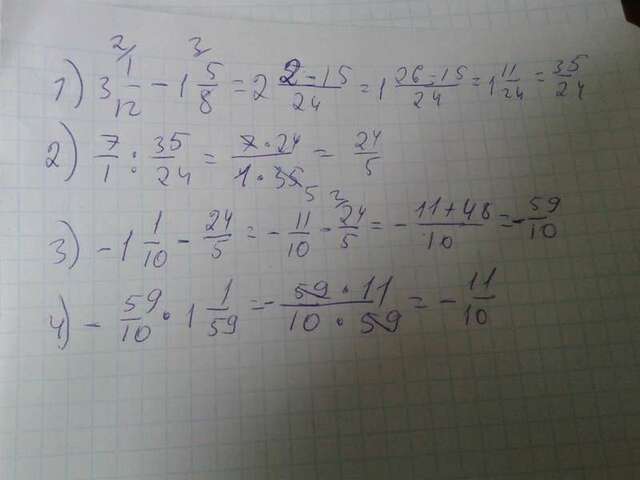 1) 3 1/12 - 1 5/8 = 2 (2-15)/24 = 1 (26-15)/24 = 1 11/24 = 35/24
2) 7/1 : 35/24 = (7·24)/(1·35) = 24/5
3) -1 1/10 - 24/5 = -11/10 - 24/5 = -(11+48)/10 = -59/10
4) -59/10 · 1 1/59 = -(59·11)/(10·59) = -11/10